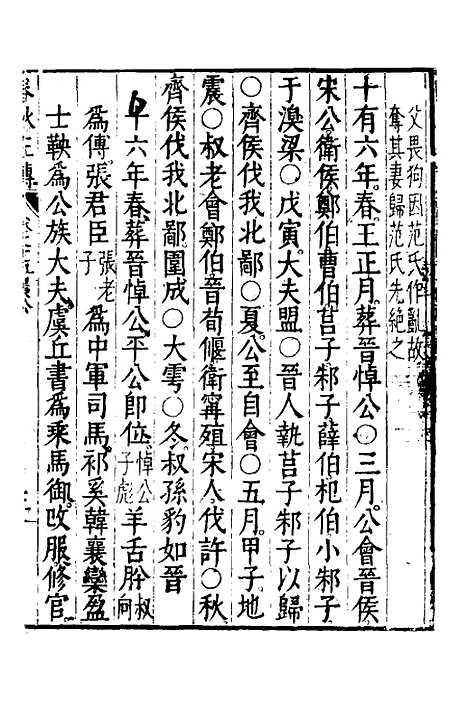 父畏狗因范氏作亂故
奪其妻歸范氏先絶之
十有六年春王正月葬晉悼公○三月公會晉侯
宋公衛侯鄭伯曹伯莒子邾子薛伯杞伯小邾子
于溴梁○戊寅大夫盟○晉人執莒子邾子以歸
○齊侯伐我北鄙○夏公至自會○五月甲子地
震○叔老會鄭伯晉荀偃衛寧殖宋人伐許○秋
齊侯伐我北鄙圍成○大雩○冬叔孫豹如晉
十六年春葬晉悼公平公即位悼公子彪羊舌肸叔向
爲傅張君臣張老子爲中軍司馬祁奚韓襄欒盈
士鞅爲公族大夫虞丘書爲乘馬御改服修官
春秋左傳